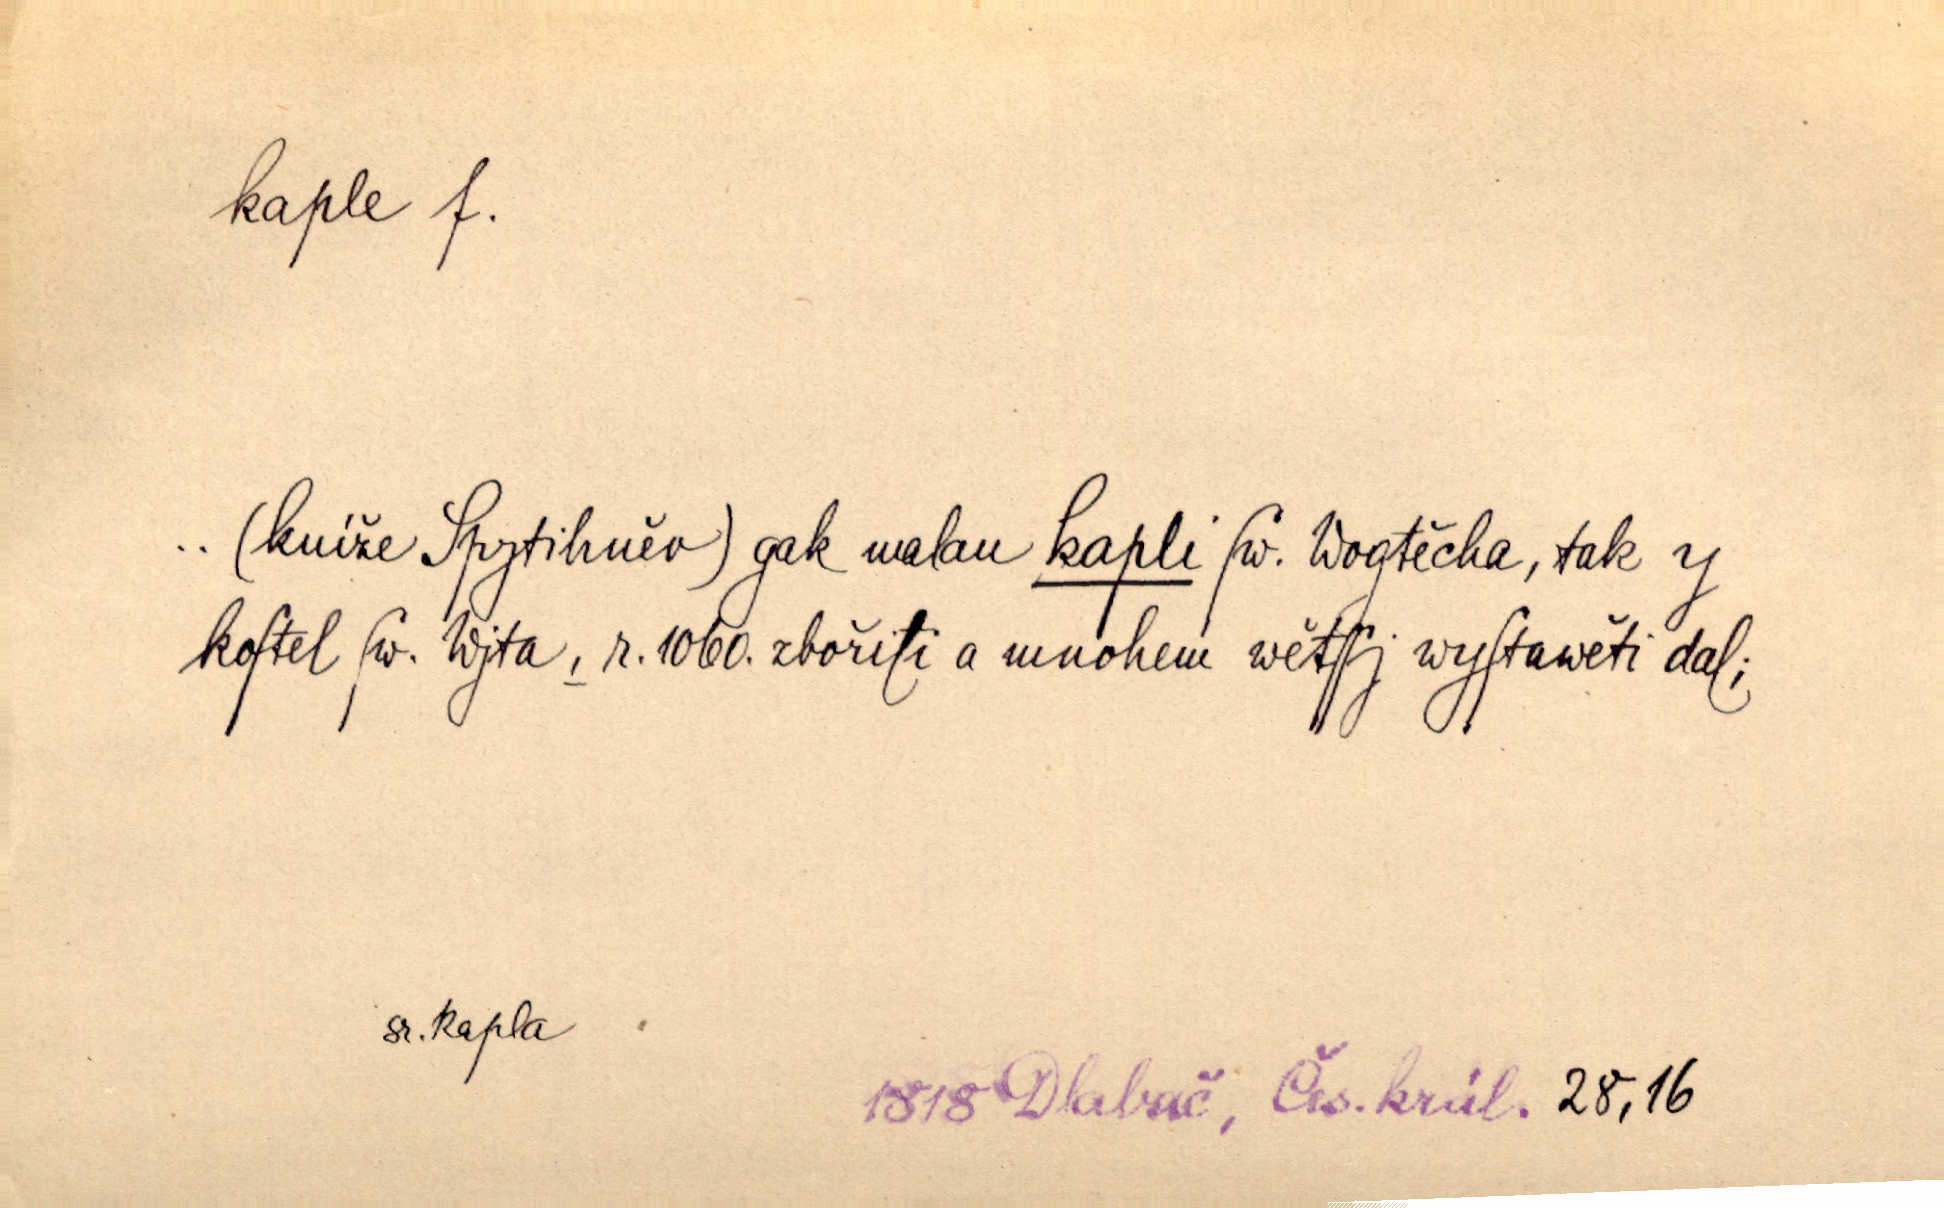 kaple f.
.. (kníže Spytihněv) gak malau kapli ſw. Wogtěcha, tak y
koſtel ſw. Wjta, r. 1060. zbořiti a mnohem wětſſj wyſtawěti dal;
sr. kapla
1818 Dlabač, Čes. král. 28,16